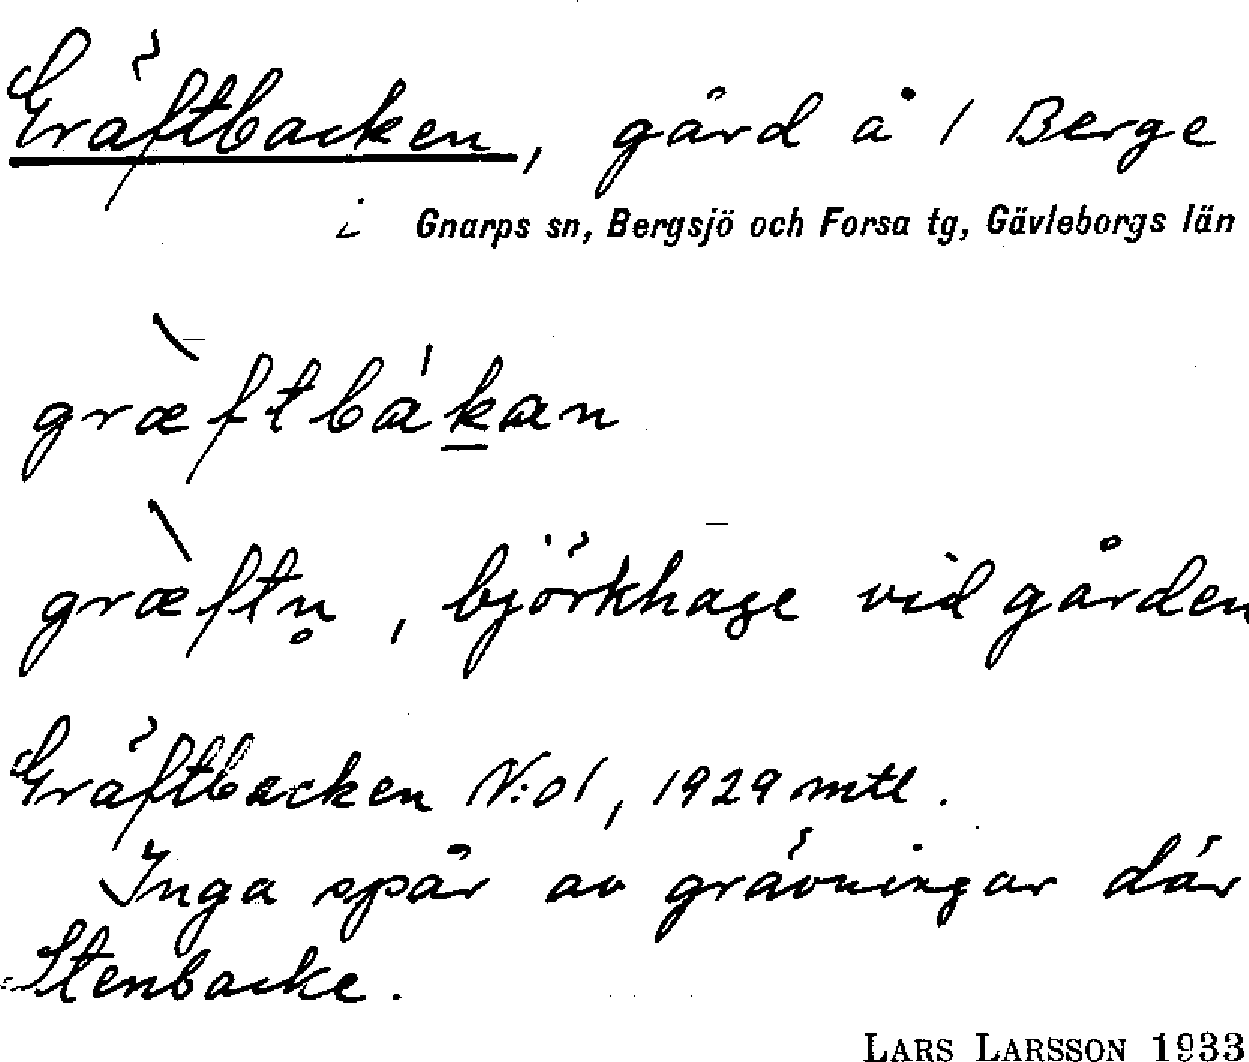 Gräftbacken, gård å 1 Berge
i Gnarps sn, Bergsjö och Forsa tg, Gävleborgs län
græ̀ftbákan
græ̀ftn̥, björkhage vid gården
Gräftbacken N:o1, 1929 mtl.
Inga spår av grävningar där
Stenbacke.
LARS LARSSON 1933